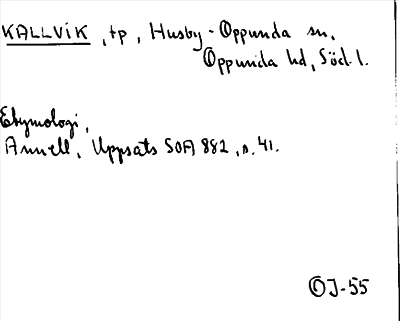 KALLVIK, tp, Husby-Oppunda sn,
Oppunda hd, Södl.
Etymologi,
Annell, Uppsats SOFA 882, s. 41.
OJ-55